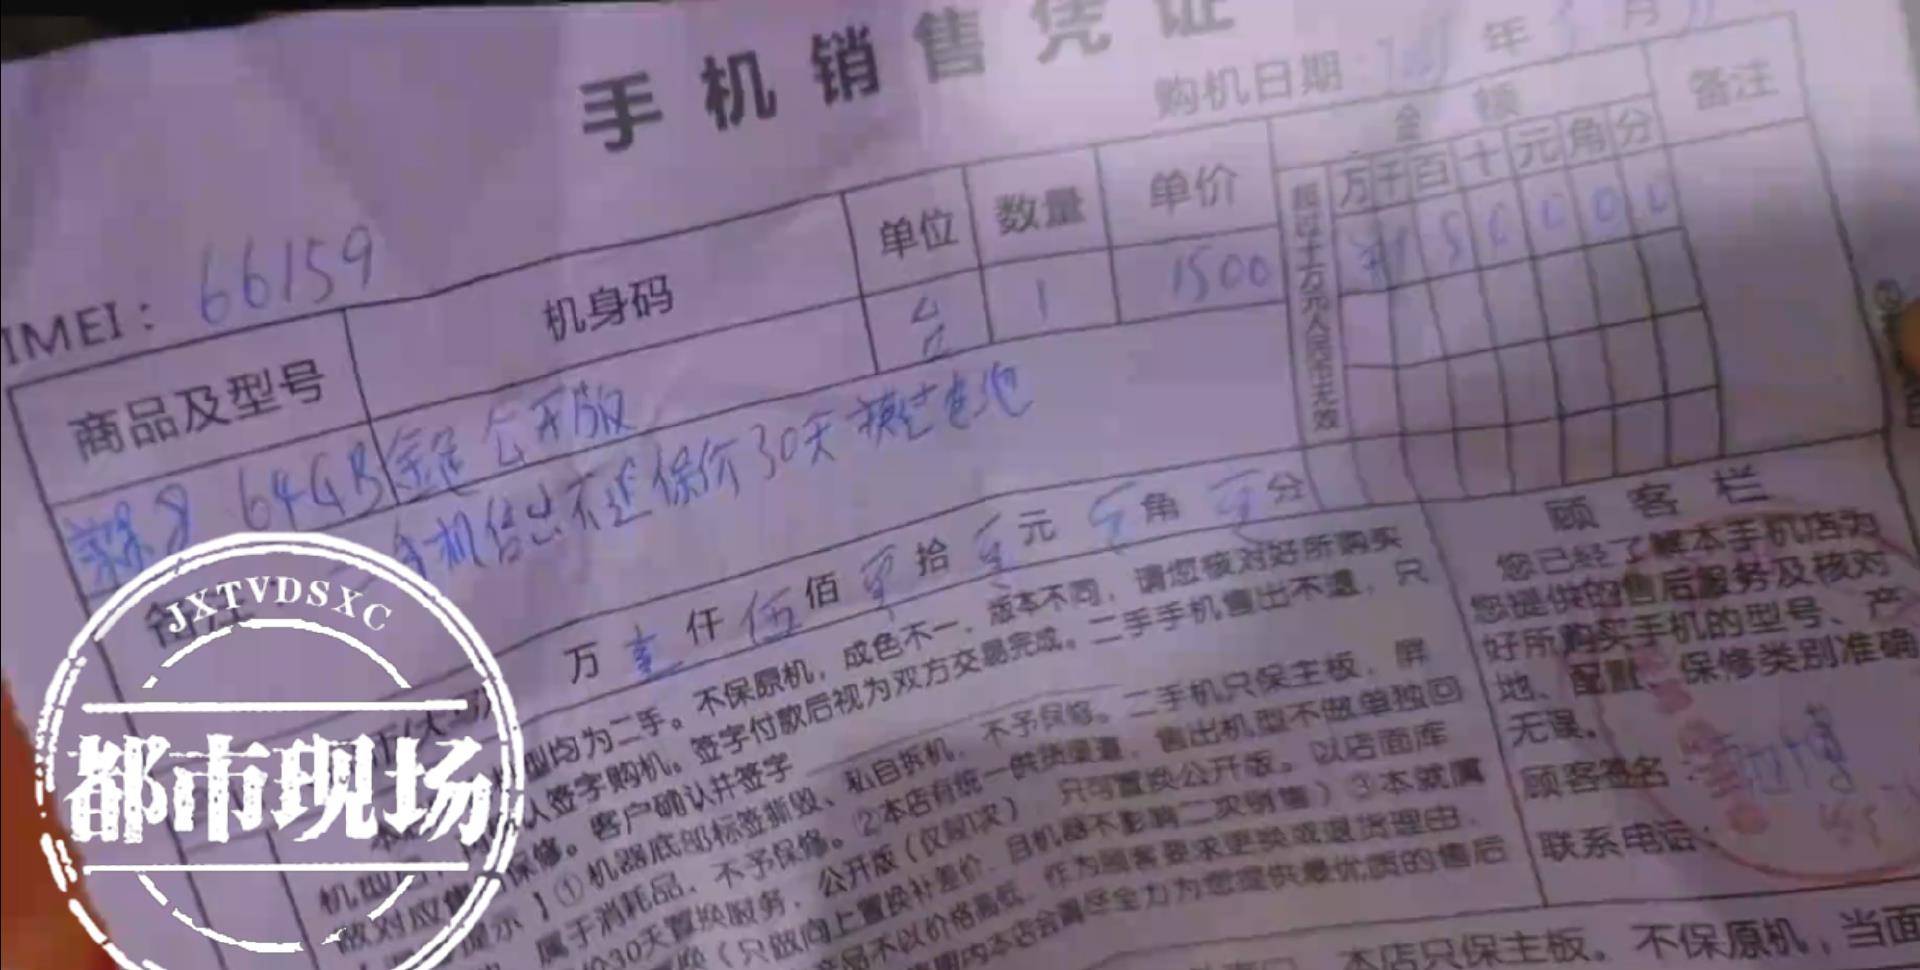 手机销售凭证
购机日期: 年 月
IMEI: 66159
商品及型号 机身码 单位 数量 单价 金额 备注
万 千 百 十 元 角 分
超过十万元人民币无效
64GB 金色 公开版 台 1 1500
售出不退 保价30天 换过电池
备注
万 壹 仟 伍 佰 零 拾 零 元 零 角 零 分
型均为二手。不保原机,成色不一,版本不同,请您核对好所购买
人签字购机。签字付款后视为双方交易完成。二手手机售出不退,只
保修。客户确认并签字
提示】①机器底部标签撕毁、私自拆机,不予保修。二手机只保主板,屏
属于消耗品,不予保修。②本店有统一供货渠道,售出机型不做单独回
30天置换服务,公开版(仅限1次),只可置换公开版。以店面库
(只做向上置换补差价,且机器不影响二次销售)③本款属
产品不以价格高低,作为顾客要求更换或退货理由,
期内本店会竭尽全力为您提供最优质的售后
顾客栏
您已经了解本手机店为
您提供的售后服务及核对
好所购买手机的型号、产
地、配置、保修类别准确
无误。
顾客签名:
联系电话:
本店只保主板。不保原机,当面
JXTVDSXC
都市现场